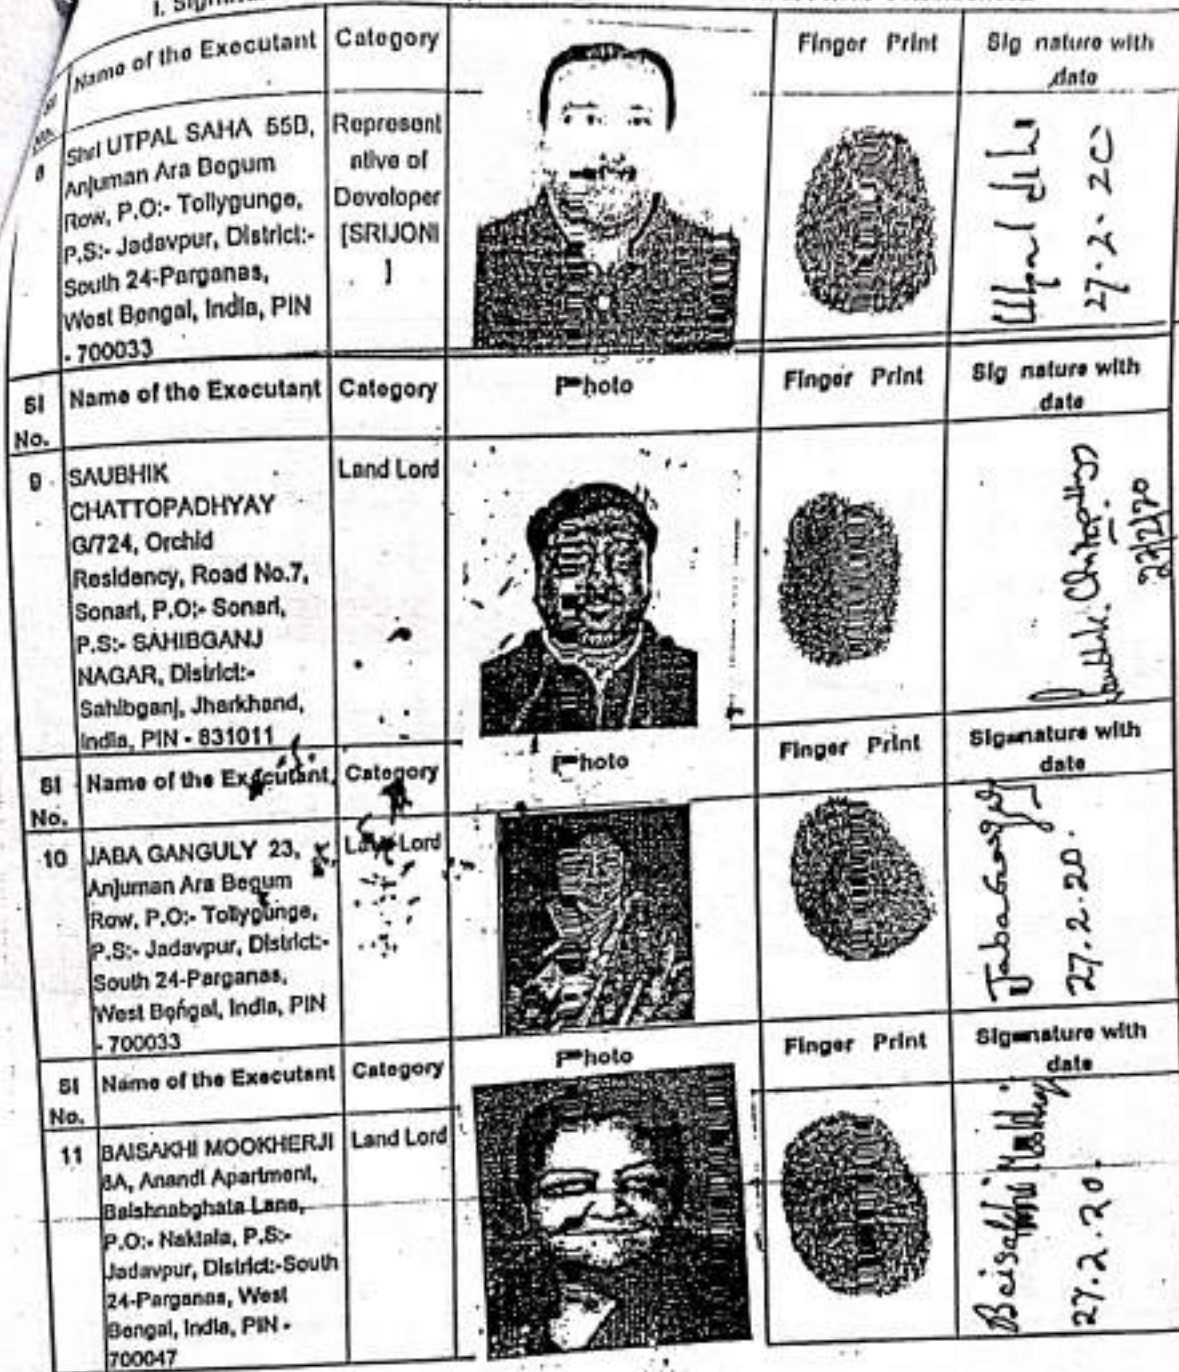 Name of the Executant
Category
Finger Print
Sig nature with
date
8
Shri UTPAL SAHA 55B,
Anjuman Ara Begum
Row, P.O:- Tollygunge,
P.S:- Jadavpur, District:-
South 24-Parganas,
West Bengal, India, PIN
- 700033
Represent
ative of
Developer
[SRIJONI
]
27.2.20
Sl
No.
Name of the Executant
Category
Photo
Finger Print
Sig nature with
date
9
SAUBHIK
CHATTOPADHYAY
G/724, Orchid
Residency, Road No.7,
Sonari, P.O:- Sonari,
P.S:- SAHIBGANJ
NAGAR, District:-
Sahibganj, Jharkhand,
India, PIN - 831011
Land Lord
27/2/20
Sl
No.
Name of the Executant
Category
Photo
Finger Print
Signature with
date
10
JABA GANGULY 23,
Anjuman Ara Begum
Row, P.O:- Tollygunge,
P.S:- Jadavpur, District:-
South 24-Parganas,
West Bengal, India, PIN
- 700033
Land Lord
Jaba Ganguly
27.2.20.
Sl
No.
Name of the Executant
Category
Photo
Finger Print
Signature with
date
11
BAISAKHI MOOKHERJI
6A, Anandi Apartment,
Baishnabghata Lane,
P.O:- Naktala, P.S:-
Jadavpur, District:-South
24-Parganas, West
Bengal, India, PIN -
700047
Land Lord
Baisakhi
27.2.20.